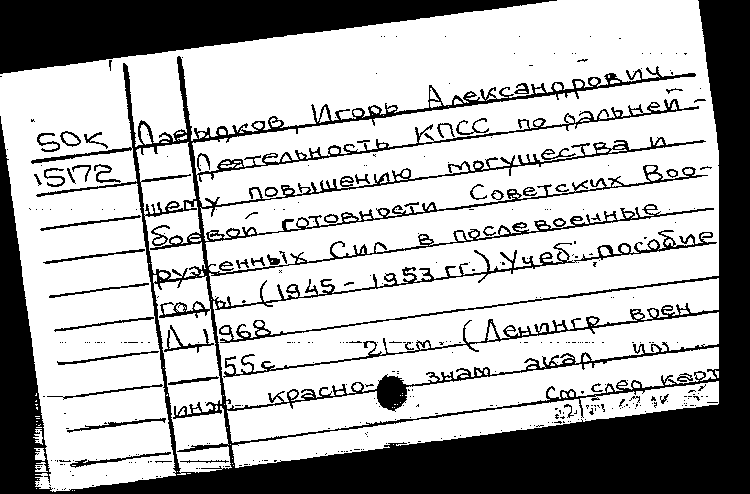 SOK Давыдков, Игорь Александрович.
15172 Деятельность КПСС по дальней-
шему повышению могущества и
боевой готовности Советских Воо-
руженных Сил в послевоенные
годы. (1945-1953 гг.). Учеб. пособие
Л., 1968.
55с. 21 см. (Ленингр. воен
инж. красно- знам. акад. им.
См. след. карт